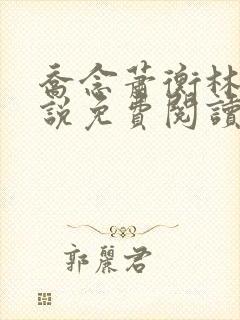 喬念蕭衡林
說免費閱讀
郭麗君